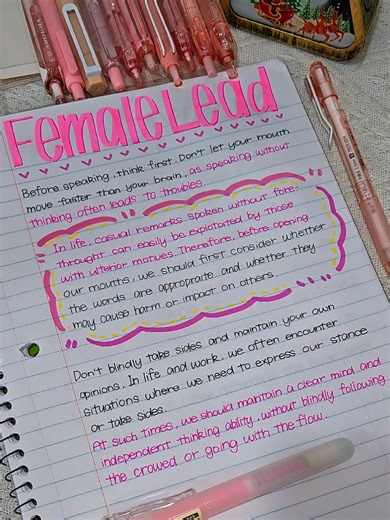 Female Lead
Before speaking, think first. Don't let your mouth
move faster than your brain, as speaking without
thinking often leads to troubles.
In life, casual remarks spoken without fore-
throught can easily be exploitated by those
with ulterior motives. Therefore, before opening
our mouths, we should first consider whether
the words are appropraite and whether they
may cause harm or impact on others
Don't blindly take sides and maintain your own
opinions. In life and work, we often encounter
situations where we need to express our stance
or take sides.
At such times, we should maintain a clear mind and
independent thinking ability, without blindly following
the crowed or going with the flow.